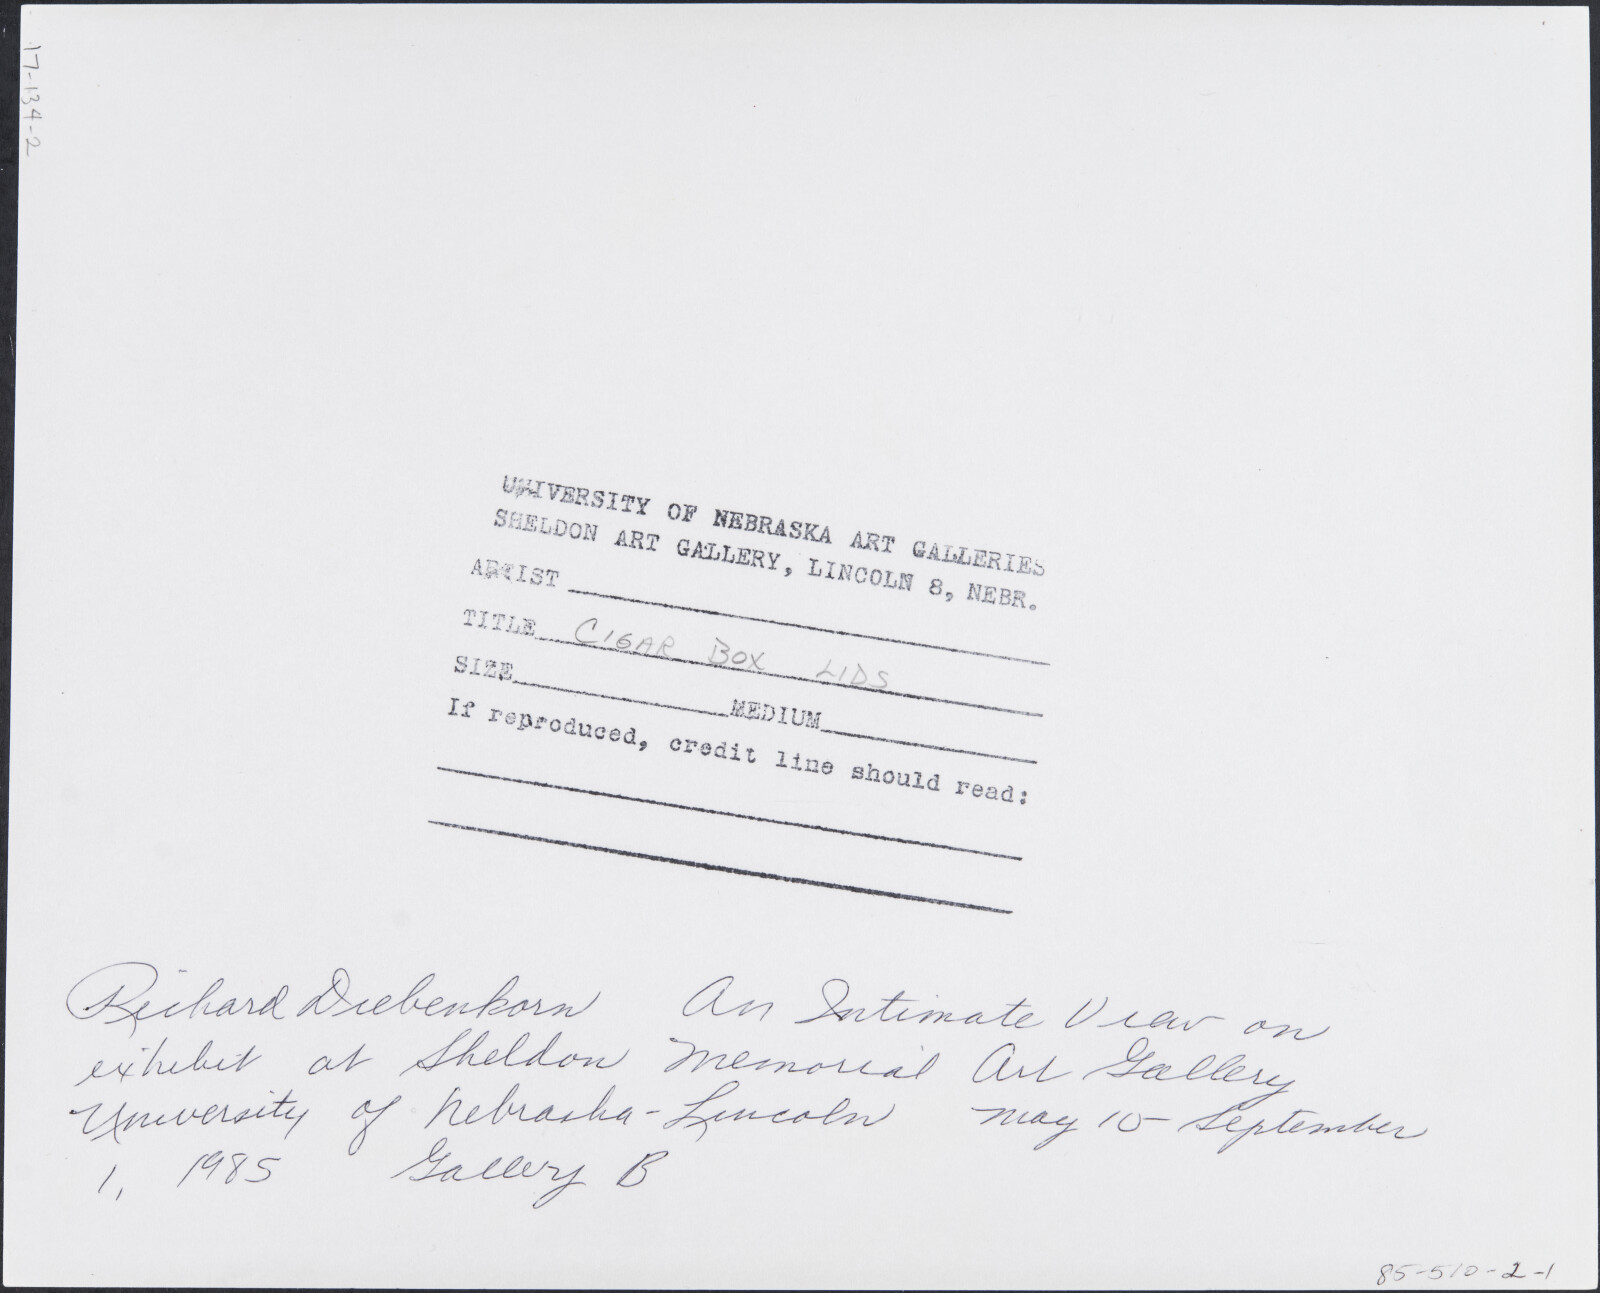 17-134-2
UNIVERSITY OF NEBRASKA ART GALLERIES
SHELDON ART GALLERY, LINCOLN 8, NEBR.
ARTIST
TITLE CIGAR BOX LIDS
SIZE MEDIUM
If reproduced, credit line should read:
Richard Diebenkorn An Intimate View on
exhibit at Sheldon Memorial Art Gallery
University of Nebraska-Lincoln May 10 - September
1, 1985 Gallery B
85-510-2-1